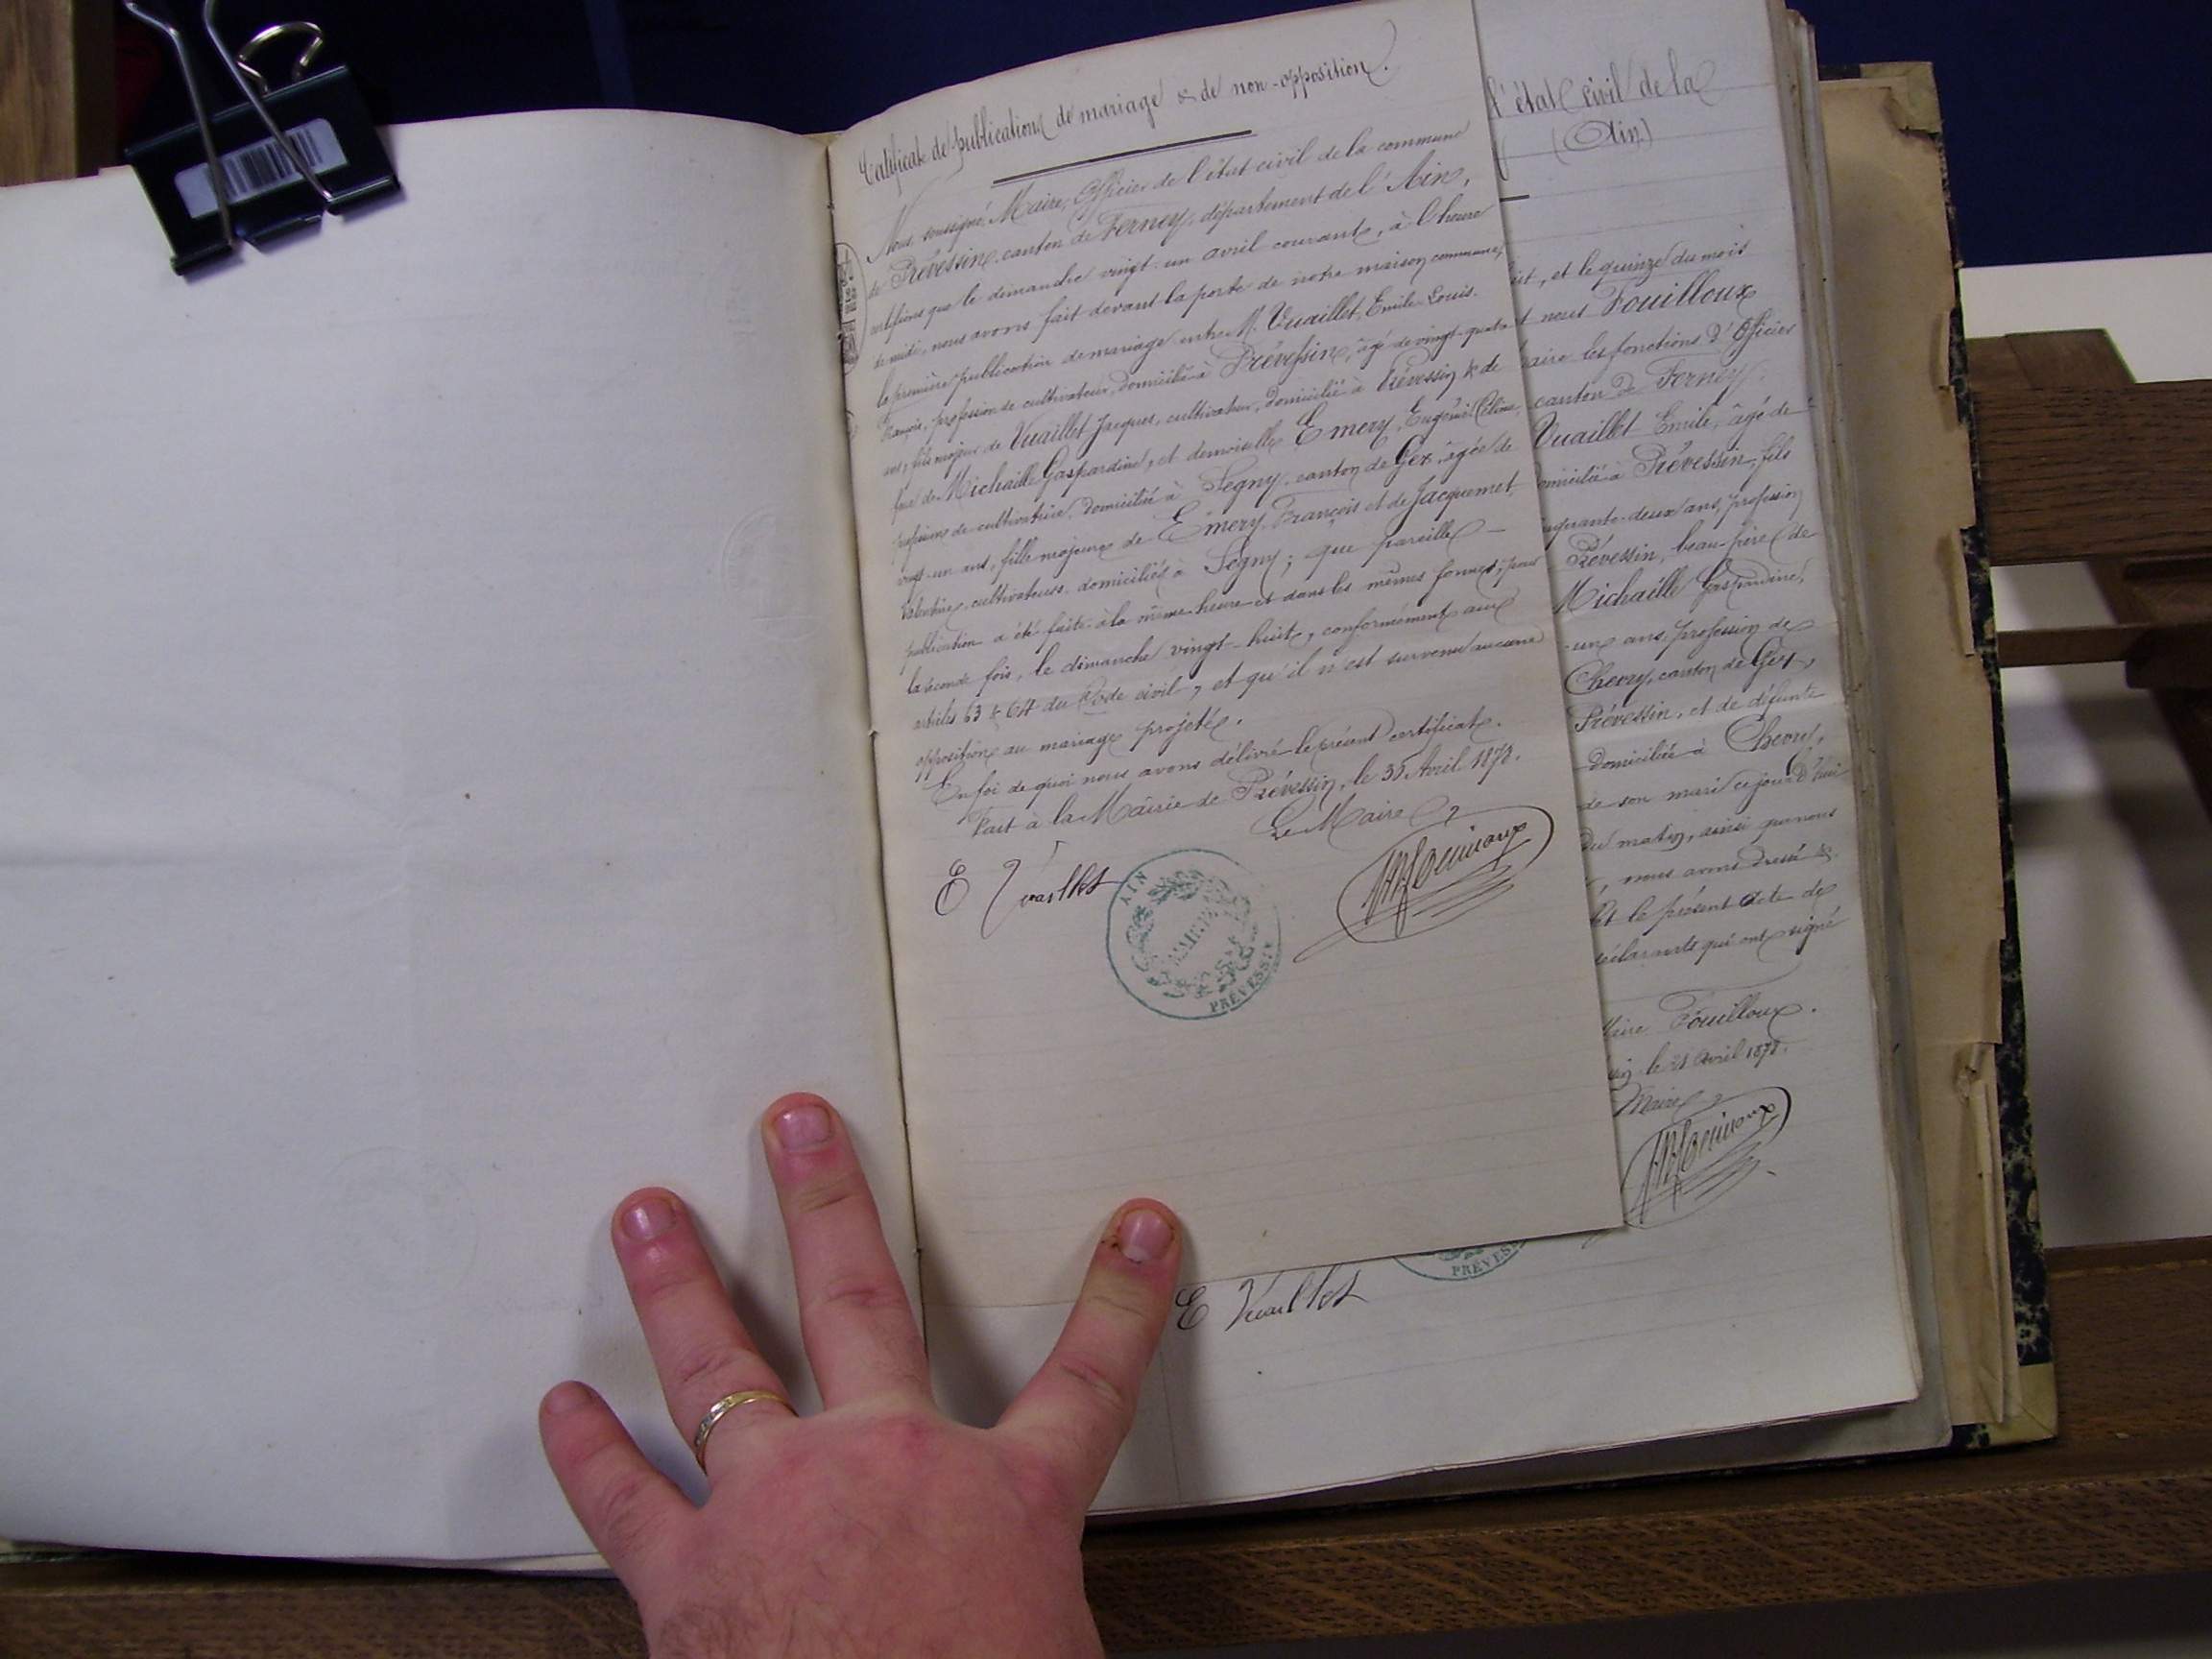 Certificat de publications de mariage & de non-opposition.
Nous soussigné, Maire, Officier de l'état civil de la commune
de Prévessin, canton de Ferney, département de l'Ain,
certifions que le dimanche vingt-un avril courant, à l'heure
de midi, nous avons fait devant la porte de notre maison commune,
la première publication de mariage entre M. Vuaillet, Emile-Louis-
François, profession de cultivateur, domicilié à Prévessin, âgé de vingt-quatre
ans, fils majeur de Vuaillet Jacques, cultivateur, domicilié à Prévessin & de
feue de Michaille Gaspardine, et demoiselle Emery, Eugénie Céline,
profession de cultivatrice, domiciliée à Segny, canton de Gex, âgée de
vingt-un ans, fille majeure de Emery, François et de Jacquemet,
Valentine, cultivateurs, domiciliés à Segny; que pareille
publication a été faite à la même heure et dans les mêmes formes, pour
la seconde fois, le dimanche vingt-huit, conformément aux
articles 63 & 64 du Code civil, et qu'il n'est survenu aucune
opposition au mariage projeté.
En foi de quoi nous avons délivré le présent certificat.
Fait à la Mairie de Prévessin, le 30 Avril 1878.
Le Maire
E Vuaillet
AIN
PRÉVESSIN
l'état civil de la
(Ain)
et le quinze du mois
nous Fouilloux
maire les fonctions d'Officier
canton de Ferney
Vuaillet Emile, âgé de
domicilié à Prévessin, fils
quarante-deux ans, profession
Prévessin, beau-père de
Michaille Gaspardine,
-un ans, profession de
Chevry, canton de Gex,
Prévessin, et de défunte
domiciliée à Chevry,
de son mari ce jourd'hui
du matin, ainsi que nous
, nous avons dressé &
et le présent acte de
déclarants qui ont signé
Fouilloux.
le 21 Avril 1878.
Maire
PRÉVESS
E Vuaillet